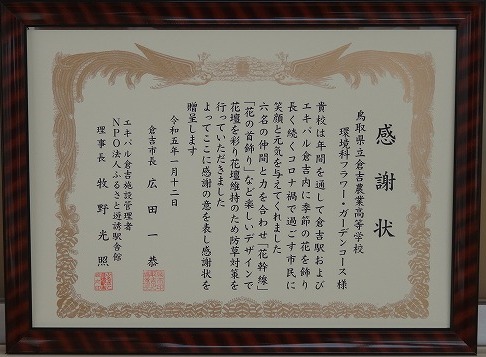 感謝状
鳥取県立倉吉農業高等学校
環境科フラワー・ガーデンコース様
貴校は年間を通して倉吉駅および
エキパル倉吉内に季節の花を飾り
長く続くコロナ禍で過ごす市民に
笑顔と元気を与えてくれました
六名の仲間と力を合わせ「花幹線」
「花の首飾り」など楽しいデザインで
花壇を彩り花壇維持のため防草対策を
行っていただきました
よってここに感謝の意を表し感謝状を
贈呈します
令和五年一月十二日
倉吉市長 広田一恭
エキパル倉吉施設管理者
NPO法人ふるさと遊誘駅舎館
理事長 牧野光照